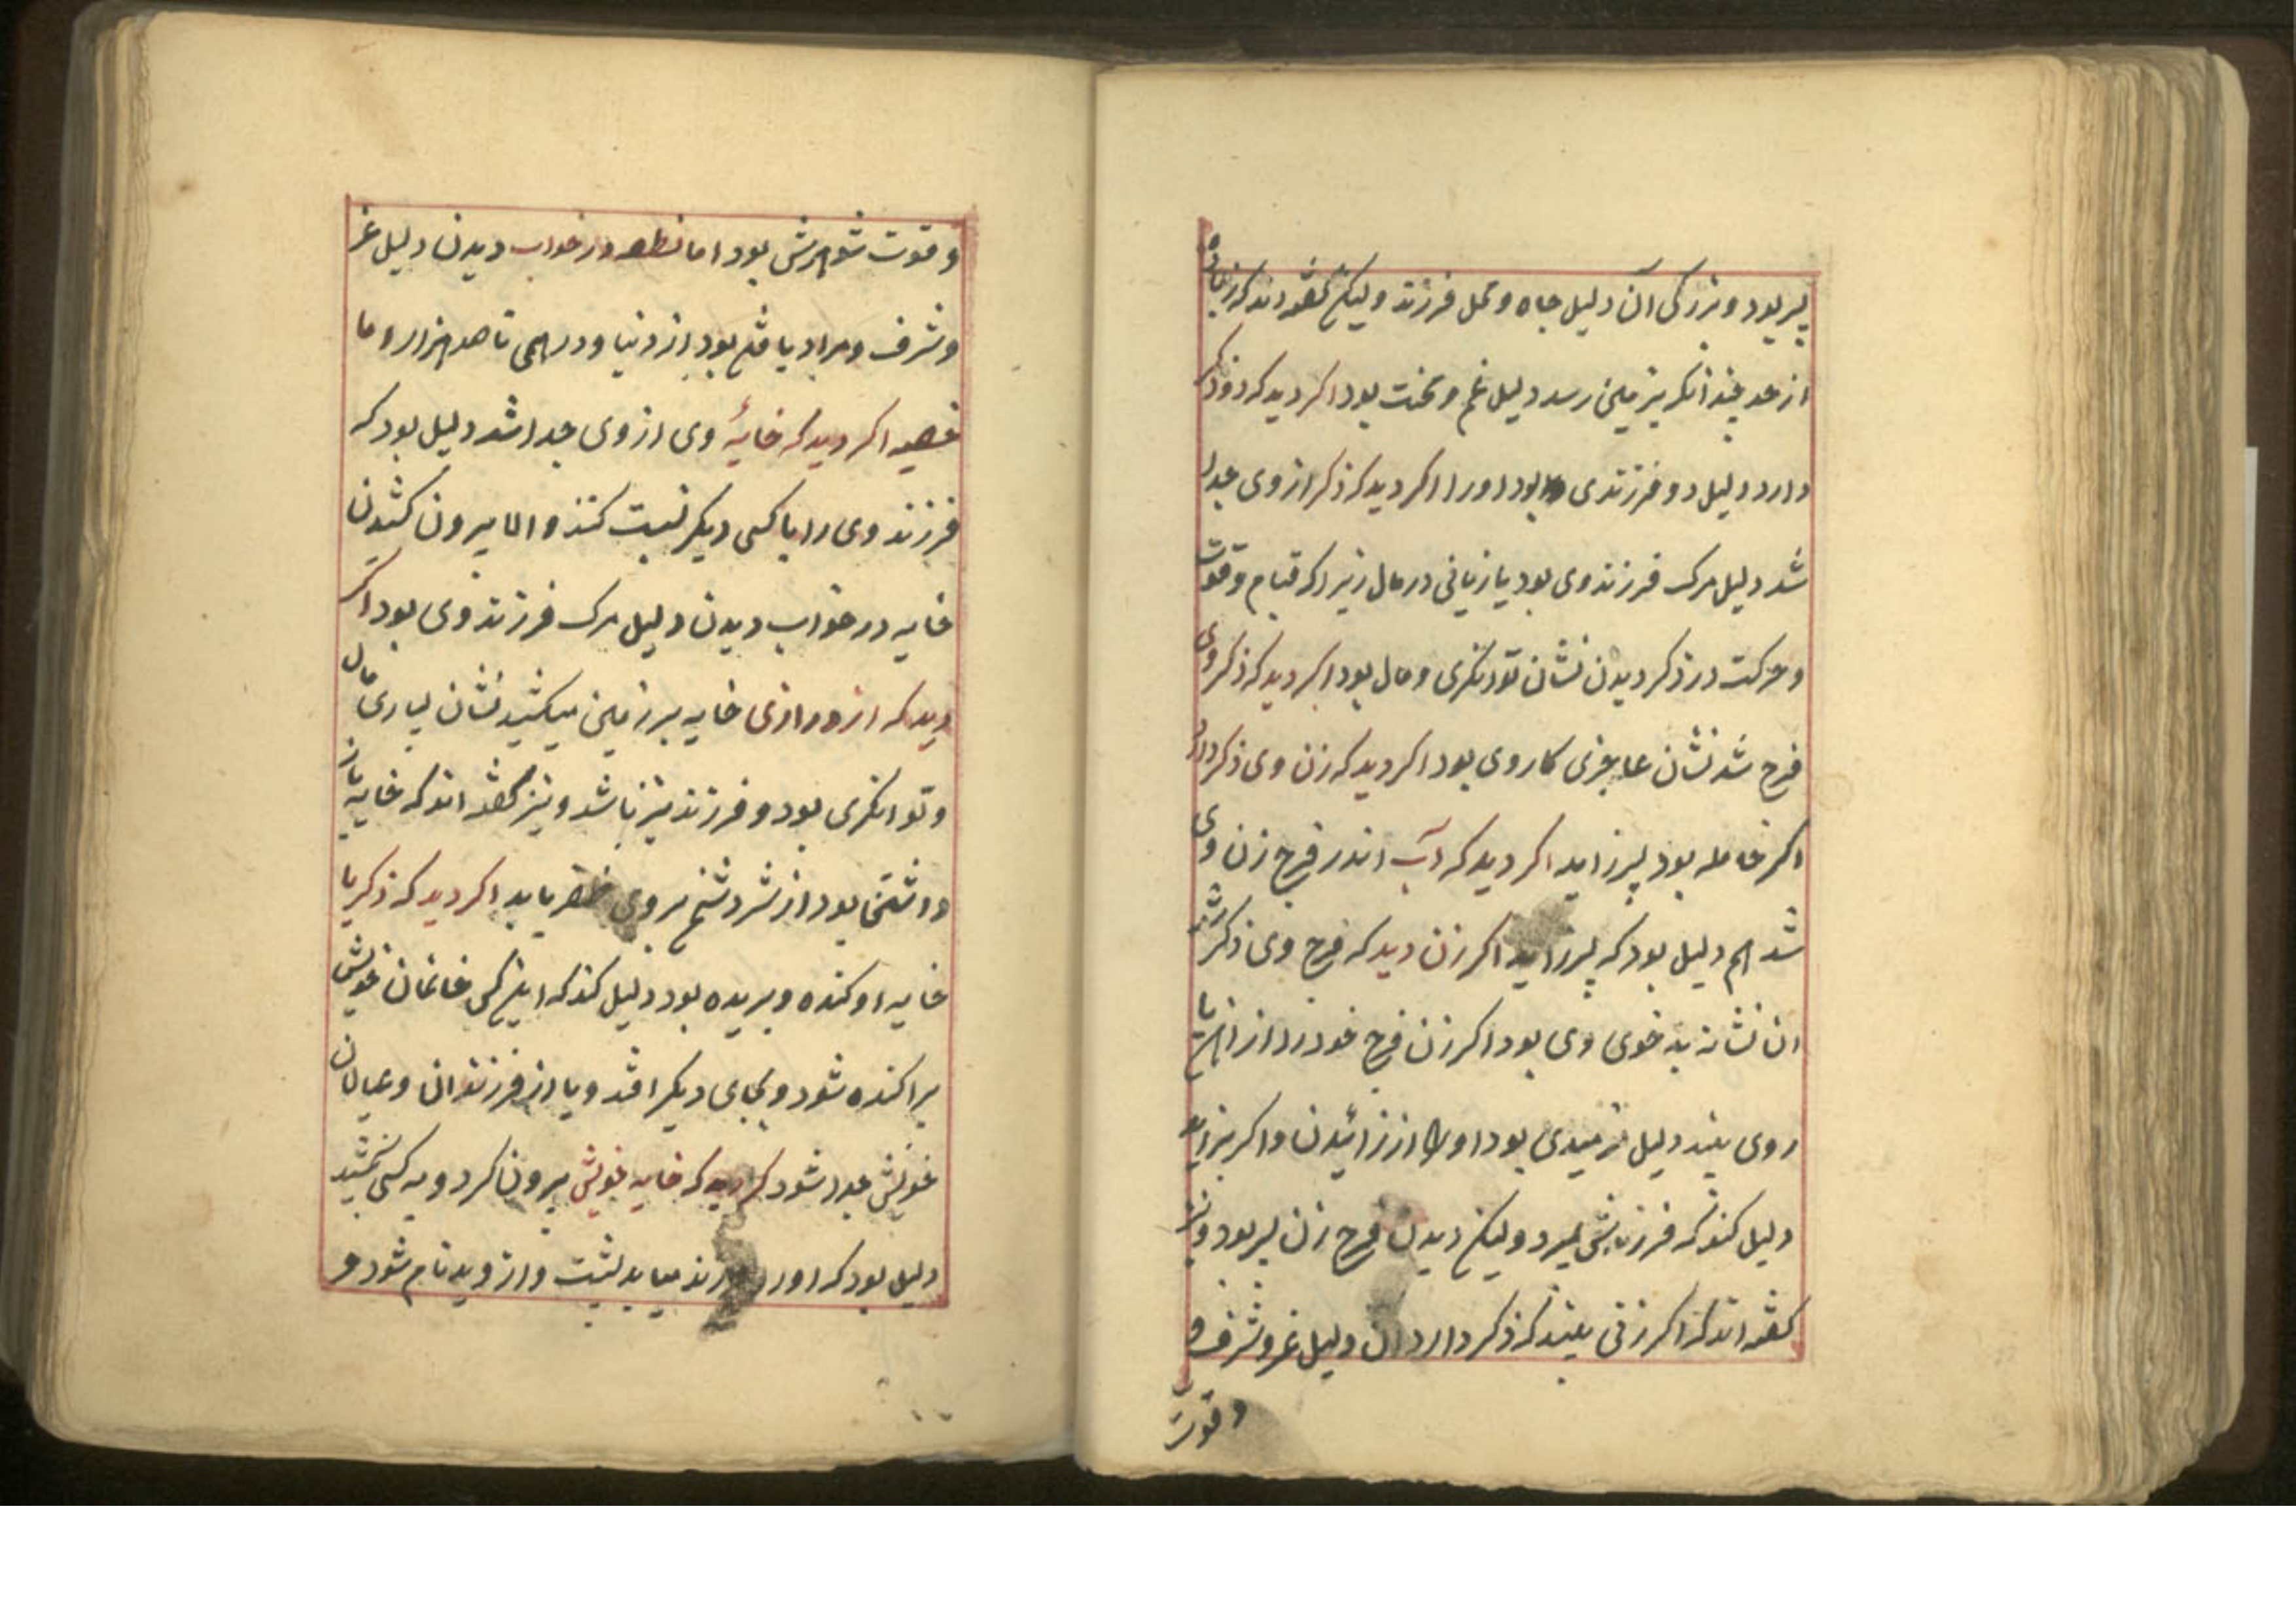 پسر بود و بزرگی آن دلیل جاه و محل فرزند ولیکن گفته‌اند که زیاده
از حد چندانکه بزمین رسد دلیل غم و محنت بود اکر دید که دو ذکر
دارد دلیل دو فرزندی بود او را اکر دید که ذکر از وی جدا
شد دلیل مرک فرزند وی بود یا زیانی در مال زیرا که قیام و قوت
و حرکت در ذکر دیدن نشان توانکری و مال بود اکر دید که ذکر وی
فرج شد نشان عاجزی کار وی بود اکر دید که زن وی ذکر دارد
اکر حامله بود پسر زاید اکر دید که آب اندر فرج زن وی
شد هم دلیل بود که پسر زاید اکر زن دید که فرج وی ذکر شد
ان نشانه بد خوی وی بود اکر زن فرج خود را از آهن یا
روی بیند دلیل نومیدی بود او را از زائیدن و اکر بزاید
دلیل کند که فرزندش بمیرد ولیکن دیدن فرج زن پسر بود و نیز
کفته‌اند که اکر زنی بیند که ذکر دارد آن دلیل عز و شرف و
و قوت
و قوت شوهرش بود اما نطفه در خواب دیدن دلیل عز
و شرف و مراد یافتن بود از دنیا و درهمی تا صد هزار و ما
خصیه اکر دید که خایهٔ وی از وی جدا شد دلیل بود که
فرزند وی را با کسی دیکر نسبت کنند و اما بیرون کشیدن
خایه در خواب دیدن دلیل مرک فرزند وی بود اکر
دید که از درازی خایه بر زمین میکشید نشان بسیاری مال
و توانکری بود و فرزند نیز باشد و نیز کفته‌اند که خایه باز
داشتن بود از شر دشمن بر وی ظفر یابد اکر دید که ذکر یا
خایه او کنده و بریده بود دلیل کند که این کس خانمان خویش
پراکنده شود و بجای دیکر افتد و یا از فرزندان و عیالان
خویش جدا شود کر دید که خایه خویش بیرون کرد و به کسی بخشید
دلیل بود که او را فرزند میاید بشبهت و از وی بدنام شود و